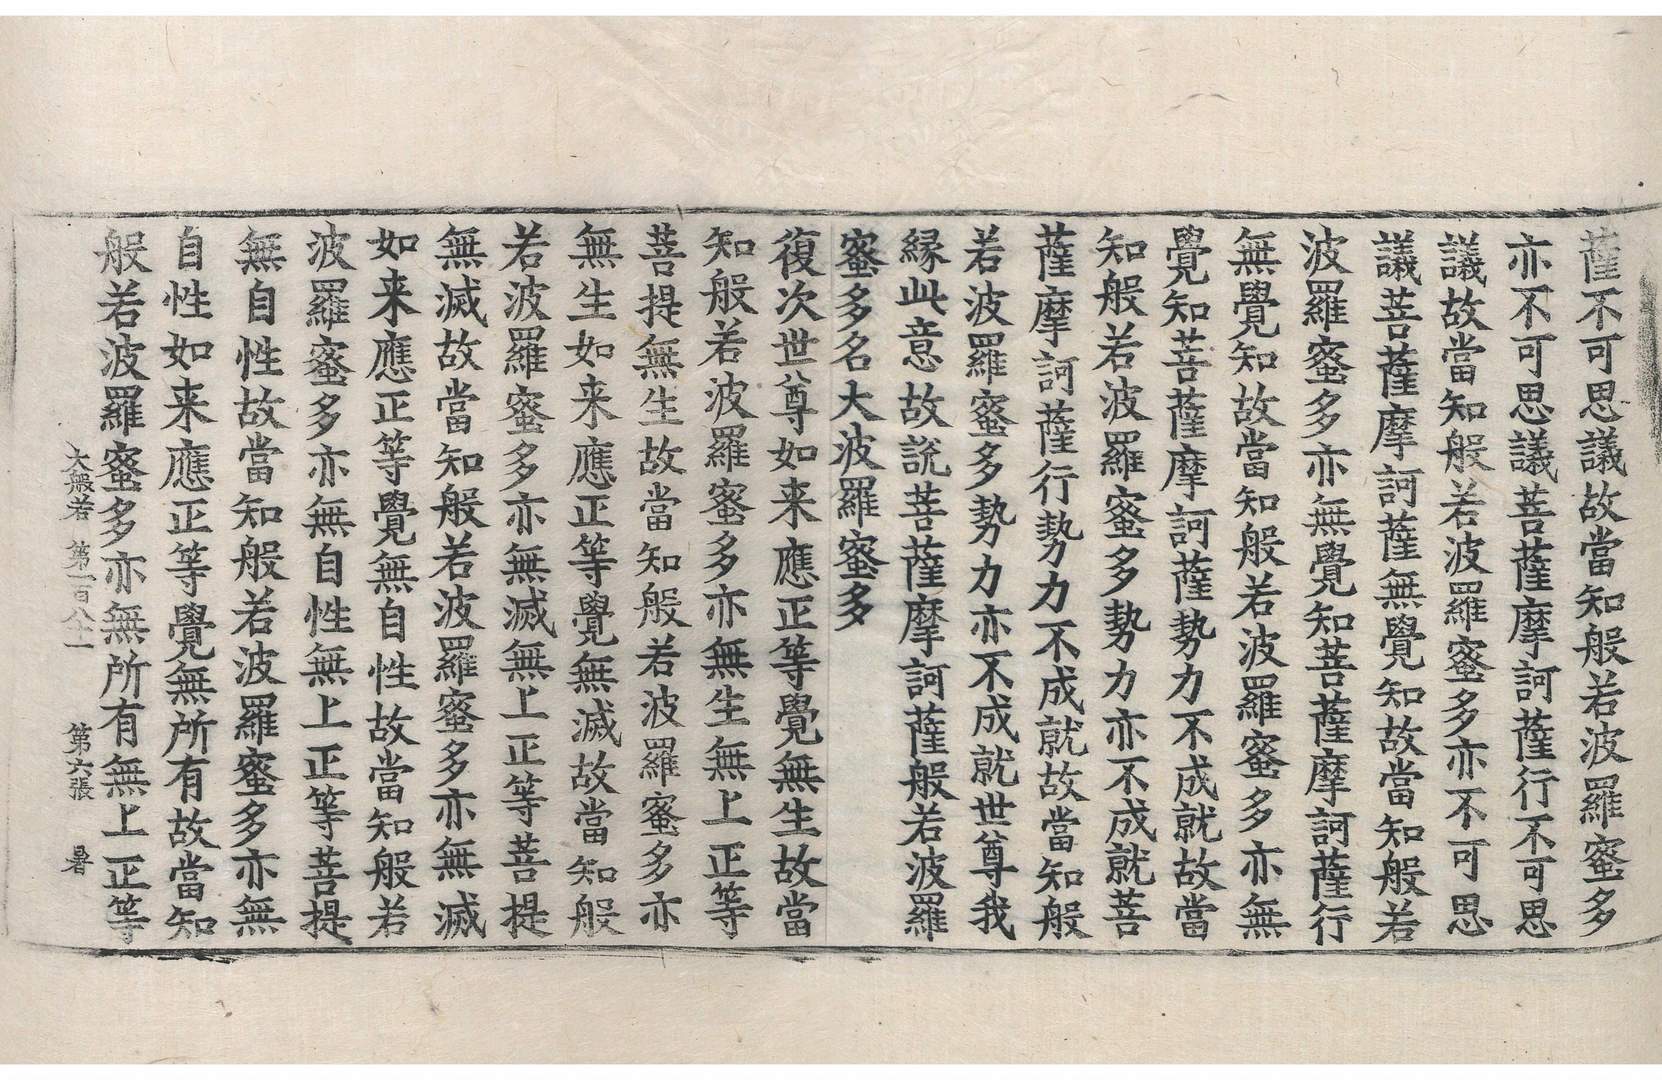 薩不可思議故當知般若波羅蜜多
亦不可思議菩薩摩訶薩行不可思
議故當知般若波羅蜜多亦不可思
議菩薩摩訶薩無覺知故當知般若
波羅蜜多亦無覺知菩薩摩訶薩行
無覺知故當知般若波羅蜜多亦無
覺知菩薩摩訶薩勢力不成就故當
知般若波羅蜜多勢力亦不成就菩
薩摩訶薩行勢力不成就故當知般
若波羅蜜多勢力亦不成就世尊我
縁此意故說菩薩摩訶薩般若波羅
蜜多名大波羅蜜多
復次世尊如来應正等覺無生故當
知般若波羅蜜多亦無生無上正等
菩提無生故當知般若波羅蜜多亦
無生如来應正等覺無滅故當知般
若波羅蜜多亦無滅無上正等菩提
無滅故當知般若波羅蜜多亦無滅
如来應正等覺無自性故當知般若
波羅蜜多亦無自性無上正等菩提
無自性故當知般若波羅蜜多亦無
自性如来應正等覺無所有故當知
般若波羅蜜多亦無所有無上正等
大般若 第一百八十一 第六張 暑